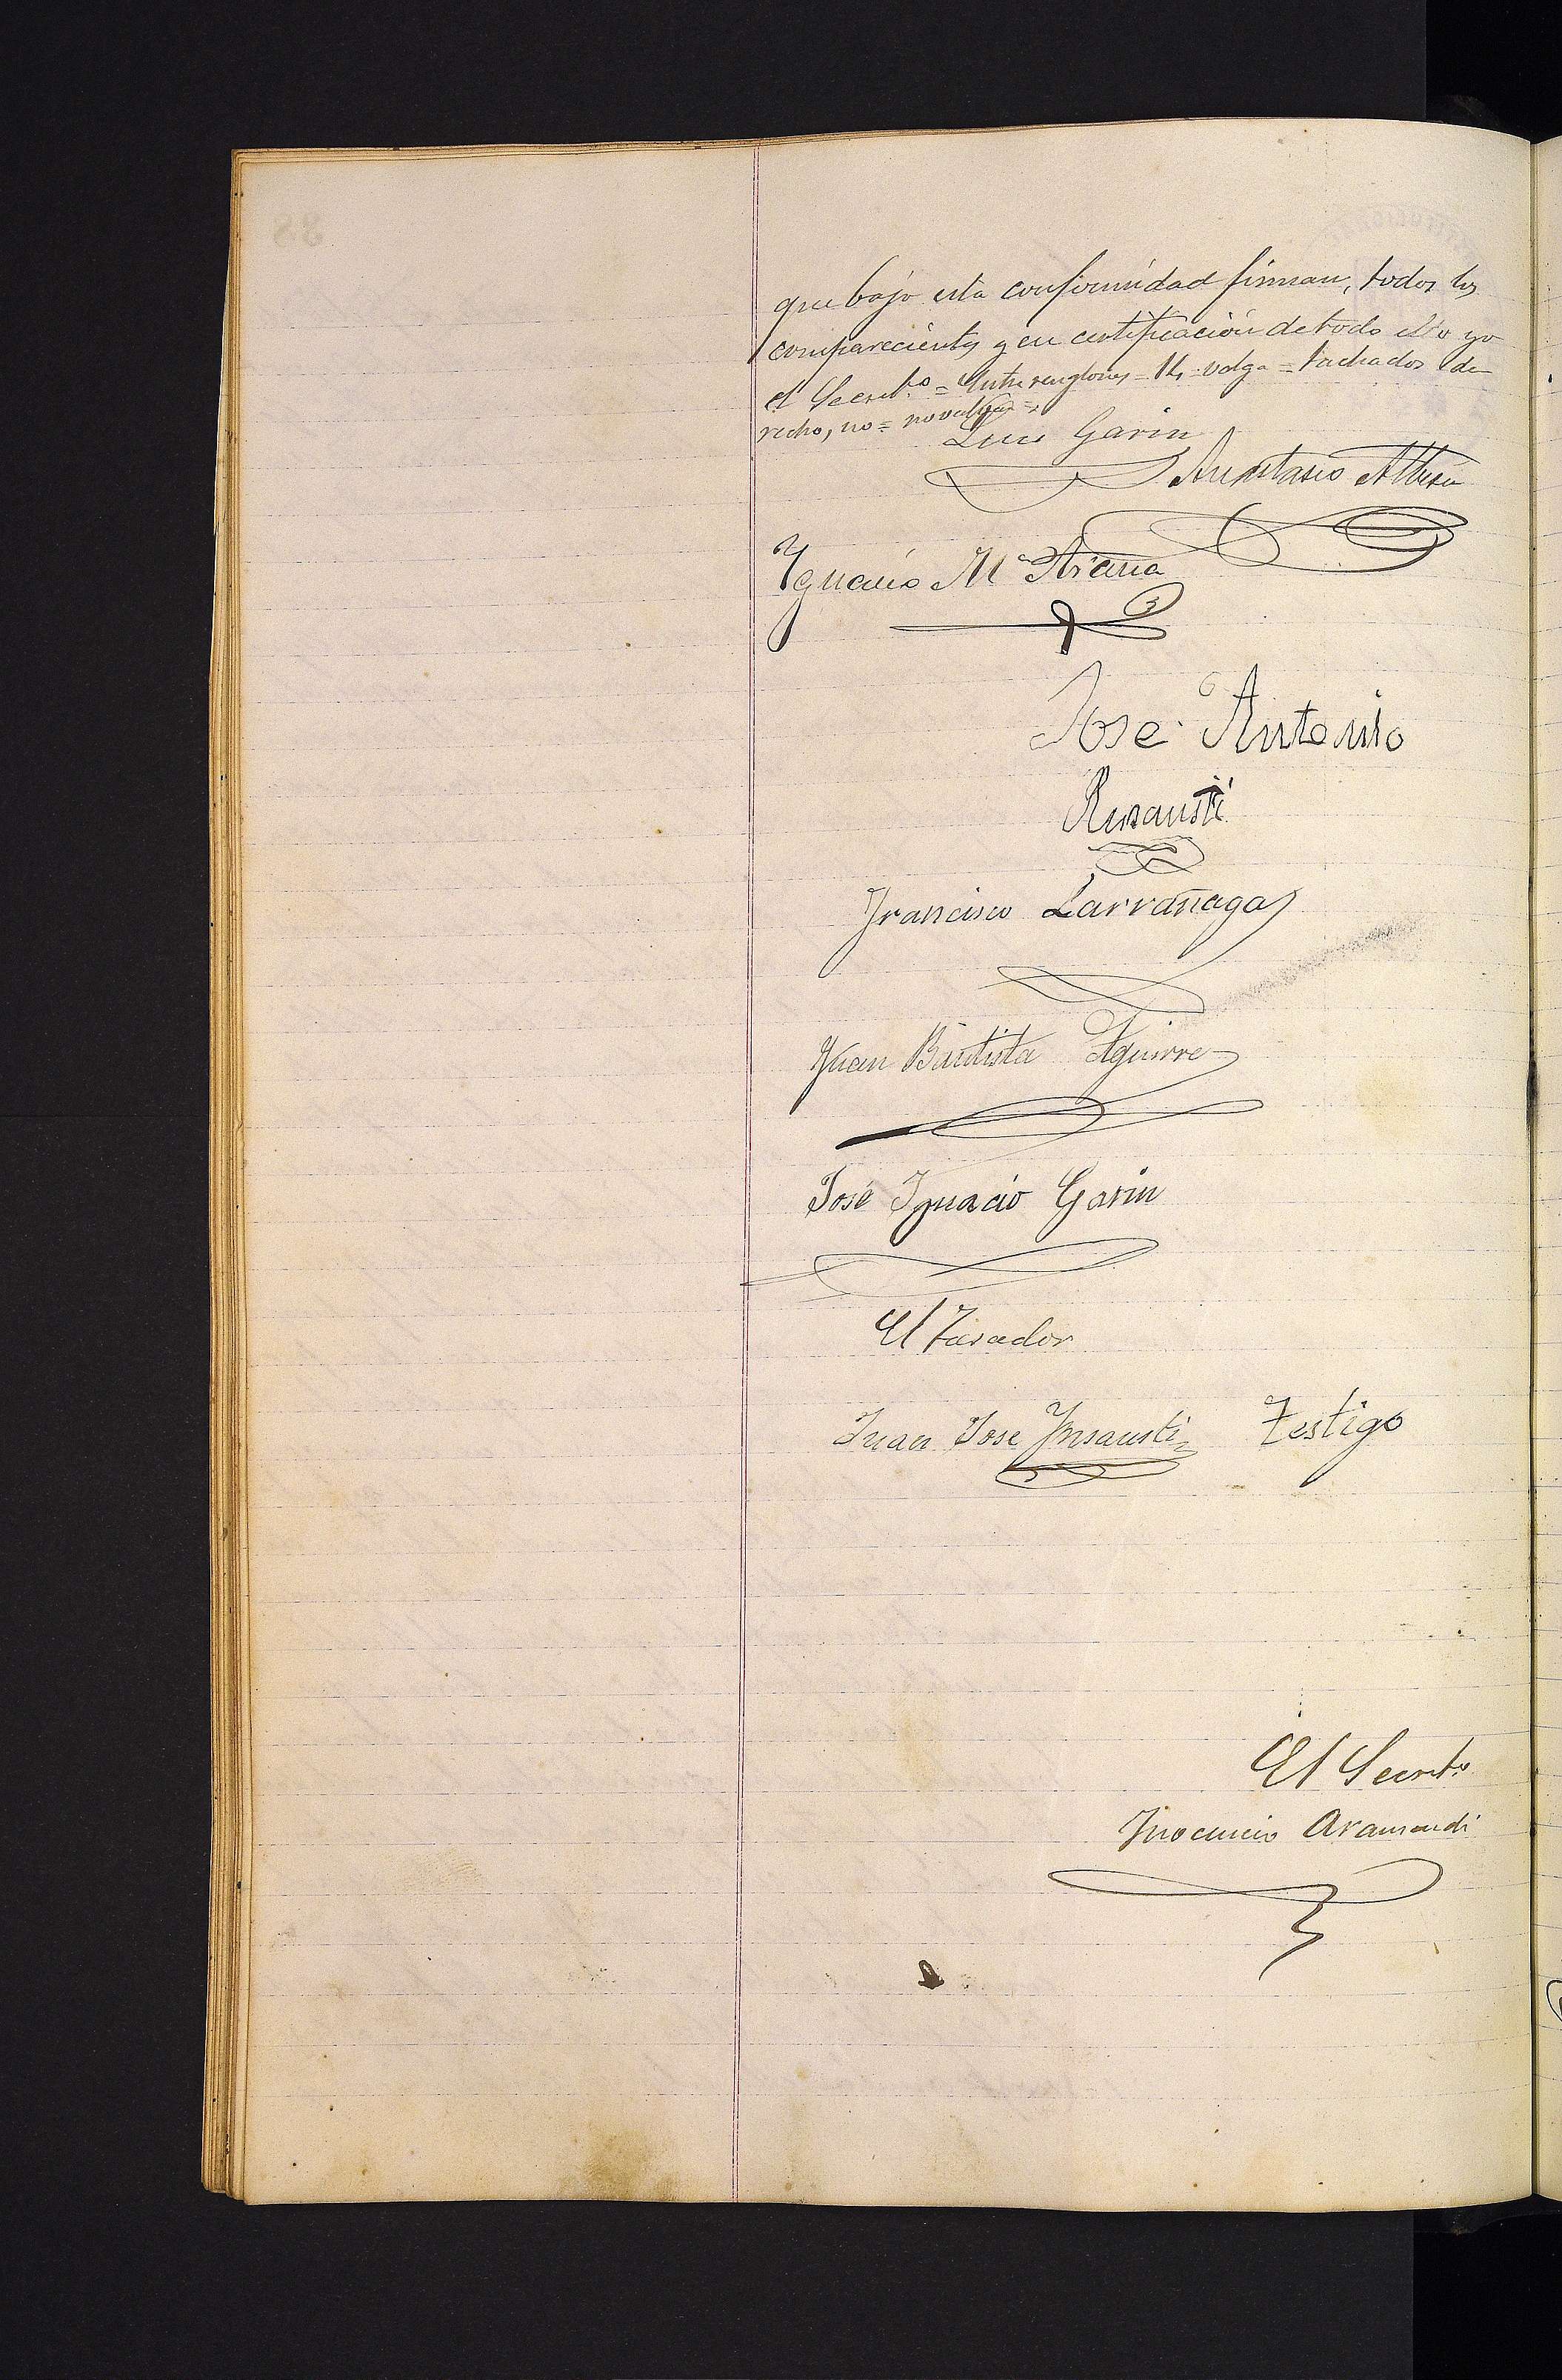 que bajo esta conformidad firman, todos los
comparecientes y en certificación de todo ello yo
el Secret.º = Entre renglones = 14 = valga = tachados = de
recho, no = no valgan =
Luis Garin
Anastasio Alberdi
Ygnacio Mª Arana
José Antonio
Ynsausti
Francisco Larrañaga
Juan Bautista Aguirre
José Ignacio Garin
El Tasador
Juan Jose Ynsausti Testigo
El Secret.º
Ynocencio Aramendi